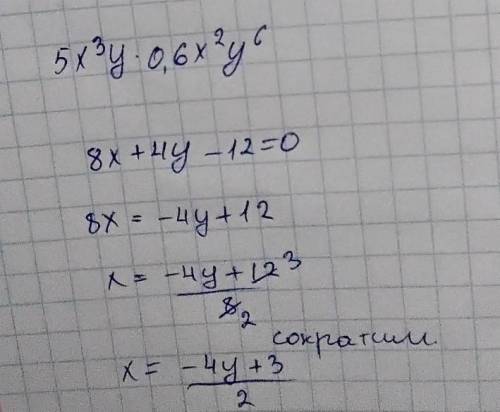 5x³y · 0,6x²y⁶
8x + 4y - 12 = 0
8x = -4y + 12
x = (-4y + 12³)/8₂
сократим.
x = (-4y + 3)/2